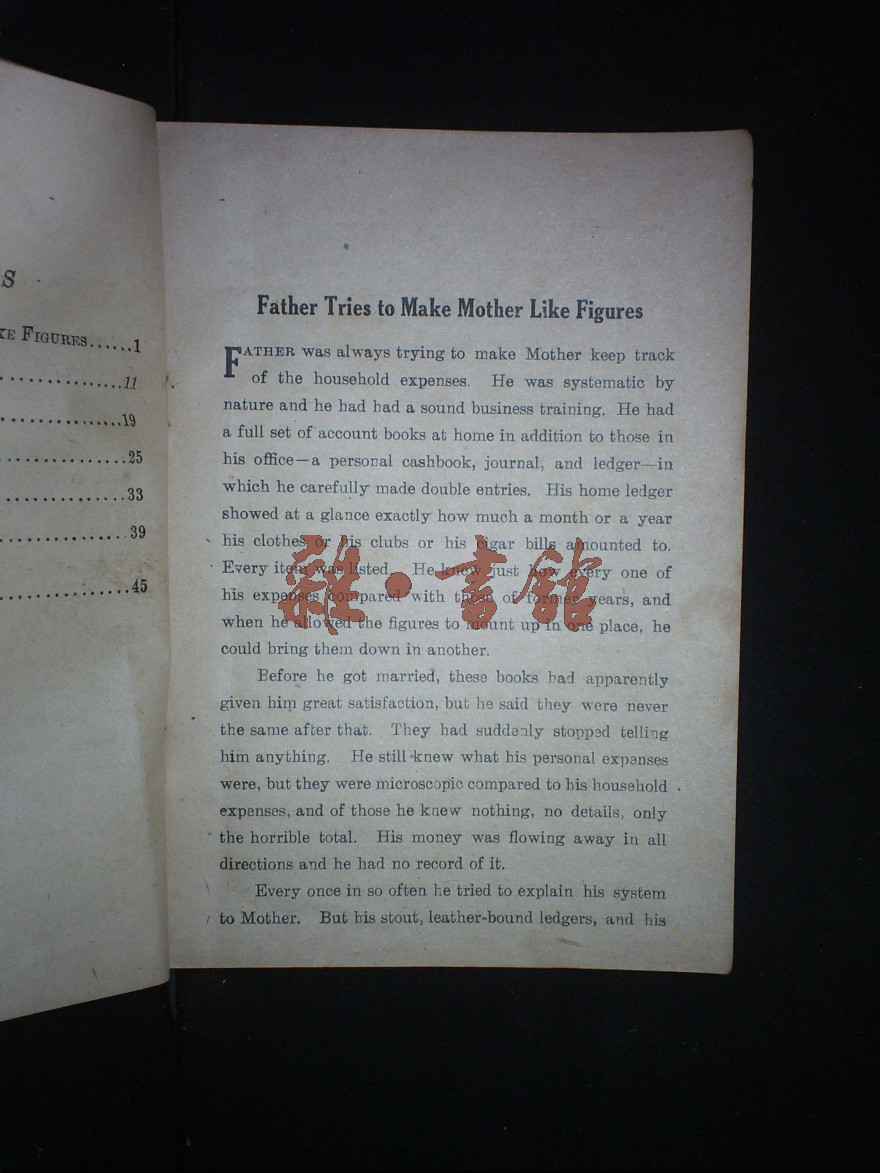 S
KE FIGURES......1
11
19
25
33
39
45
Father Tries to Make Mother Like Figures
FATHER was always trying to make Mother keep track
of the household expenses. He was systematic by
nature and he had had a sound business training. He had
a full set of account books at home in addition to those in
his office—a personal cashbook, journal, and ledger—in
which he carefully made double entries. His home ledger
showed at a glance exactly how much a month or a year
his clothes or his clubs or his cigar bills amounted to.
Every item was listed. He knew just how every one of
his expenses compared with those of former years, and
when he allowed the figures to mount up in one place, he
could bring them down in another.
Before he got married, these books had apparently
given him great satisfaction, but he said they were never
the same after that. They had suddenly stopped telling
him anything. He still knew what his personal expenses
were, but they were microscopic compared to his household
expenses, and of those he knew nothing, no details, only
the horrible total. His money was flowing away in all
directions and he had no record of it.
Every once in so often he tried to explain his system
to Mother. But his stout, leather-bound ledgers, and his
雜•書館